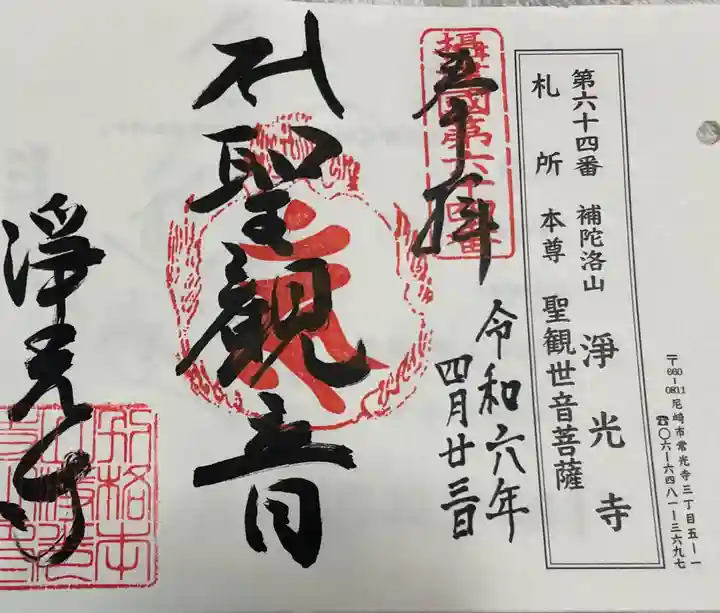 〒660-0811 尼崎市常光寺三丁目五-一
☎〇六-六四八一-三六九七
第六十四番 補陀洛山 淨光寺
札所本尊 聖観世音菩薩
攝津國第六十四番
奉拝
令和六年
四月廿三日
聖観音
淨光寺